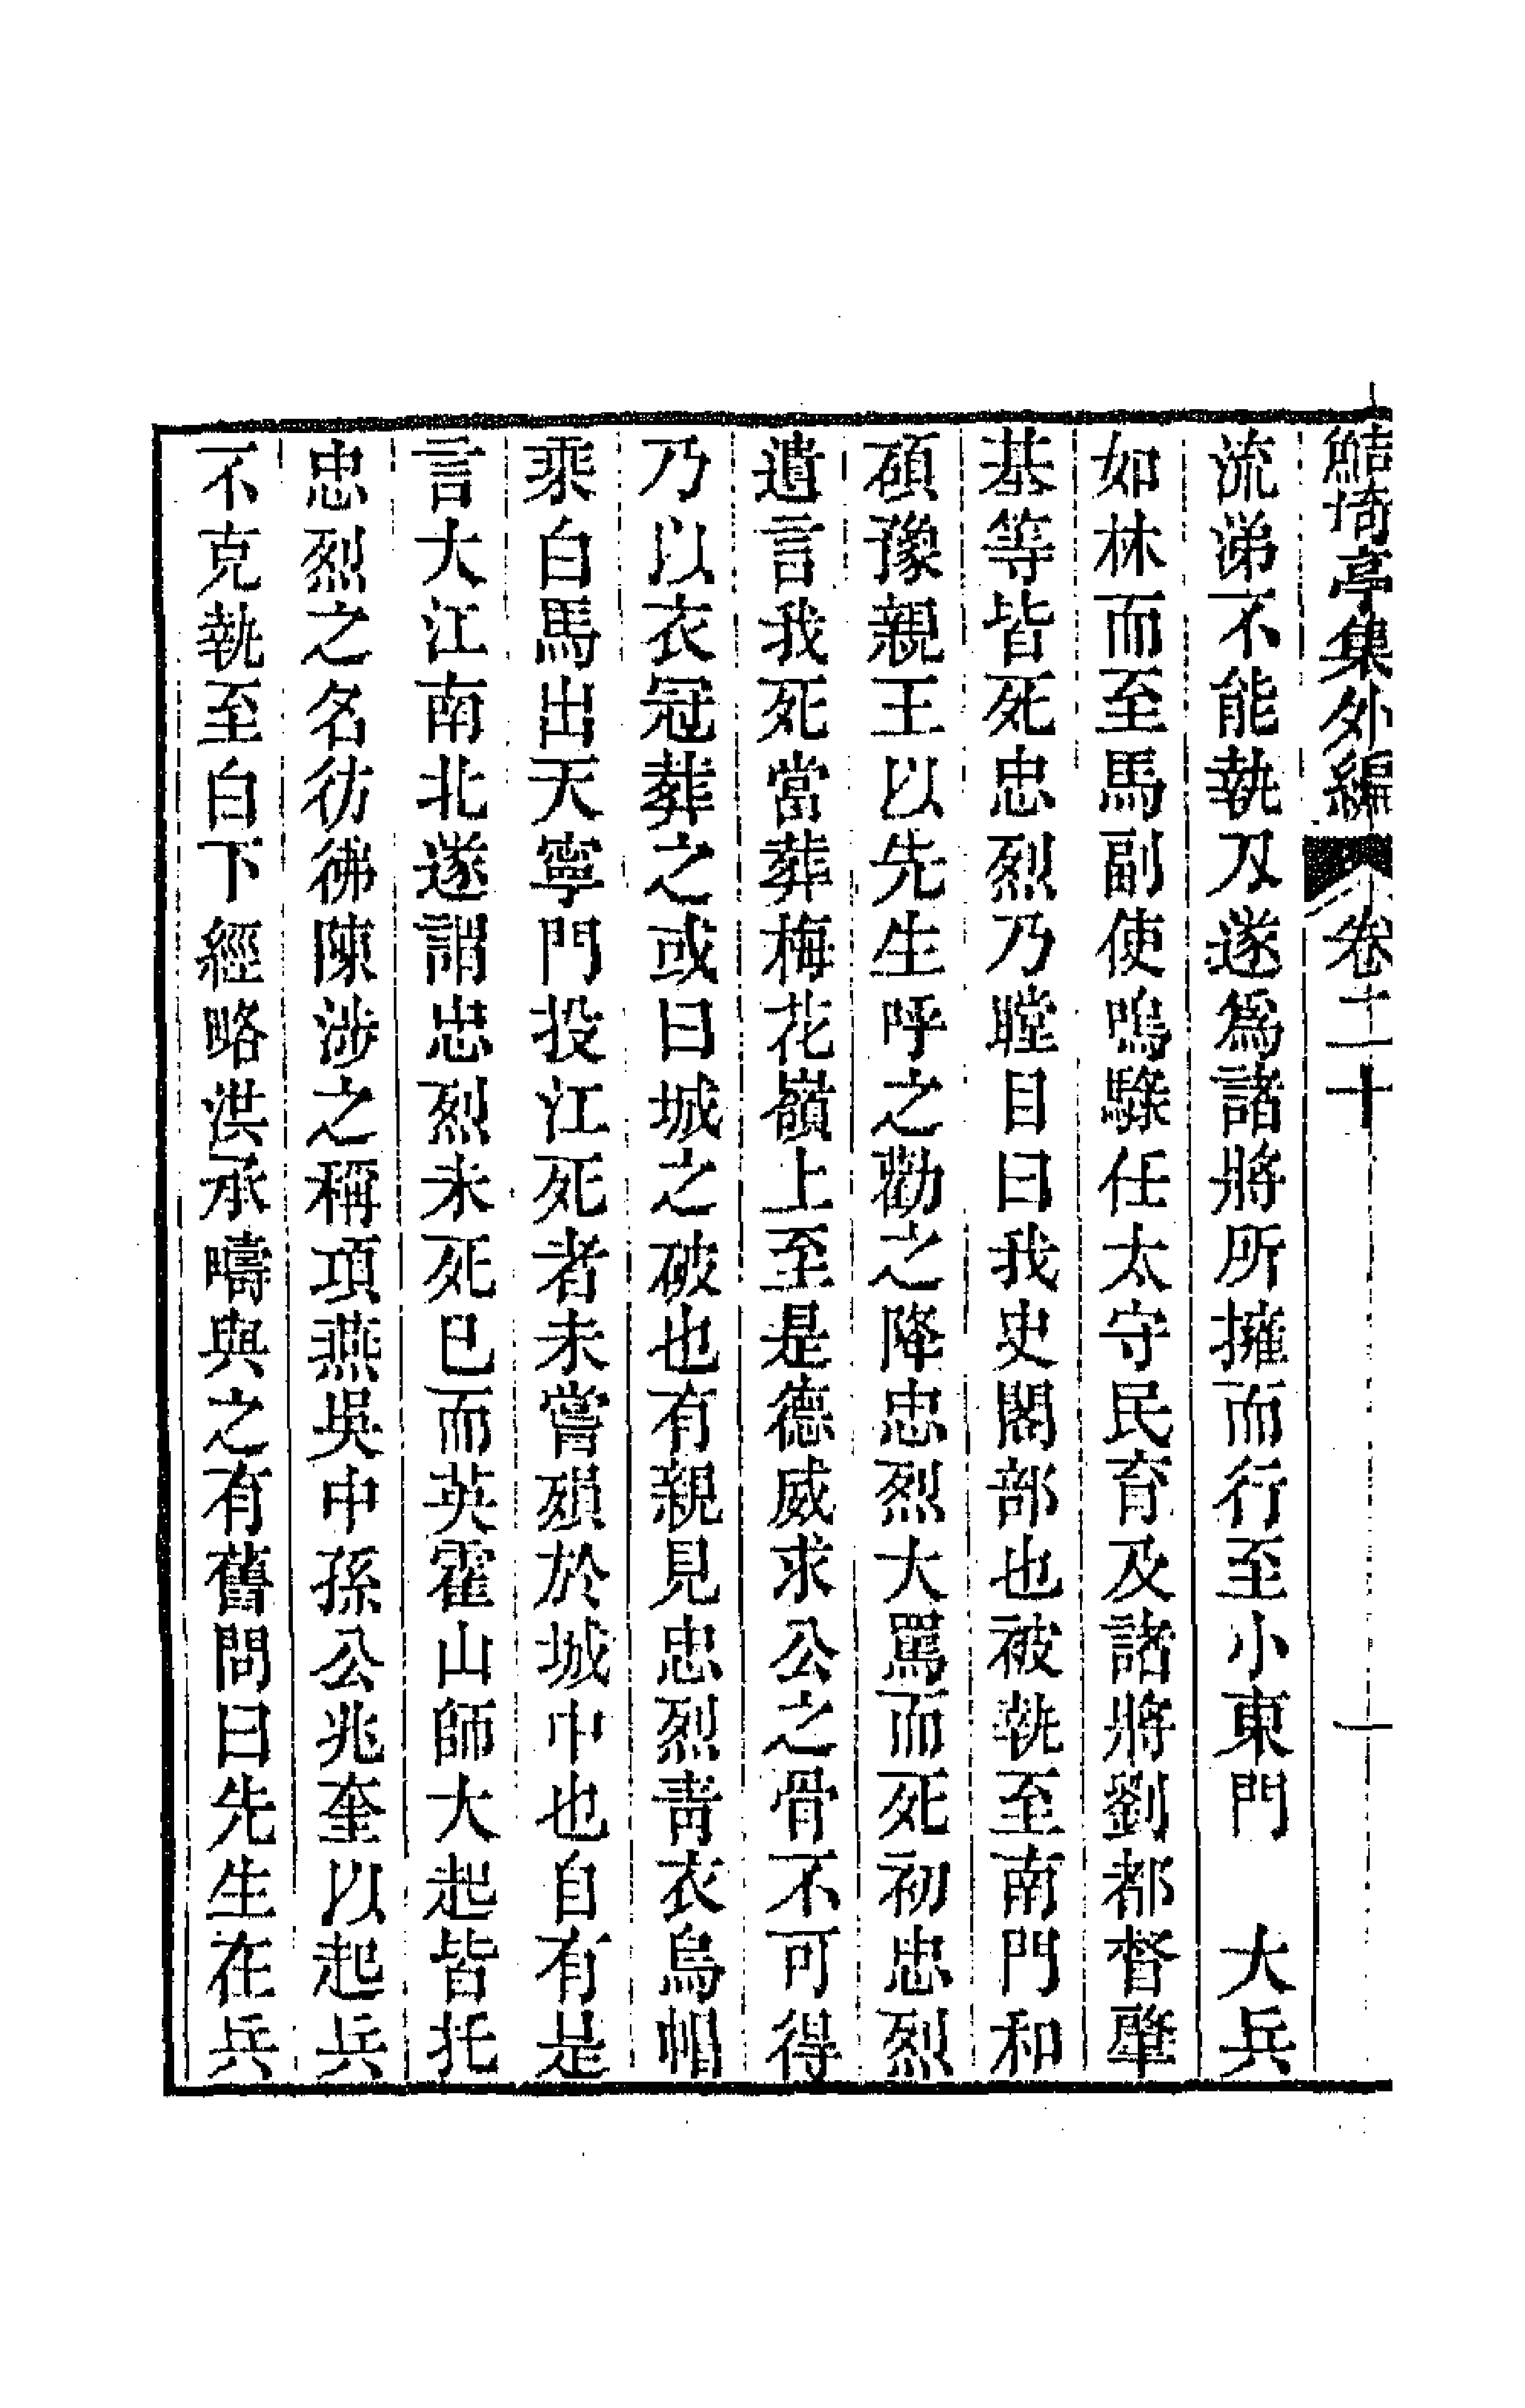 鮚埼亭集外編 卷二十
流涕不能執刀遂爲諸將所擁而行至小東門 大兵
如林而至馬副使鳴騄任太守民育及諸將劉都督肇
基等皆死忠烈乃瞠目曰我史閣部也被執至南門和
碩豫親王以先生呼之勸之降忠烈大罵而死初忠烈
遺言我死當葬梅花嶺上至是德威求公之骨不可得
乃以衣冠葬之或曰城之破也有親見忠烈靑衣烏帽
乘白馬出天寧門投江死者未嘗殞於城中也自有是
言大江南北遂謂忠烈未死已而英霍山師大起皆托
忠烈之名彷彿陳涉之稱項燕吳中孫公兆奎以起兵
不克執至白下經略洪承疇與之有舊問曰先生在兵